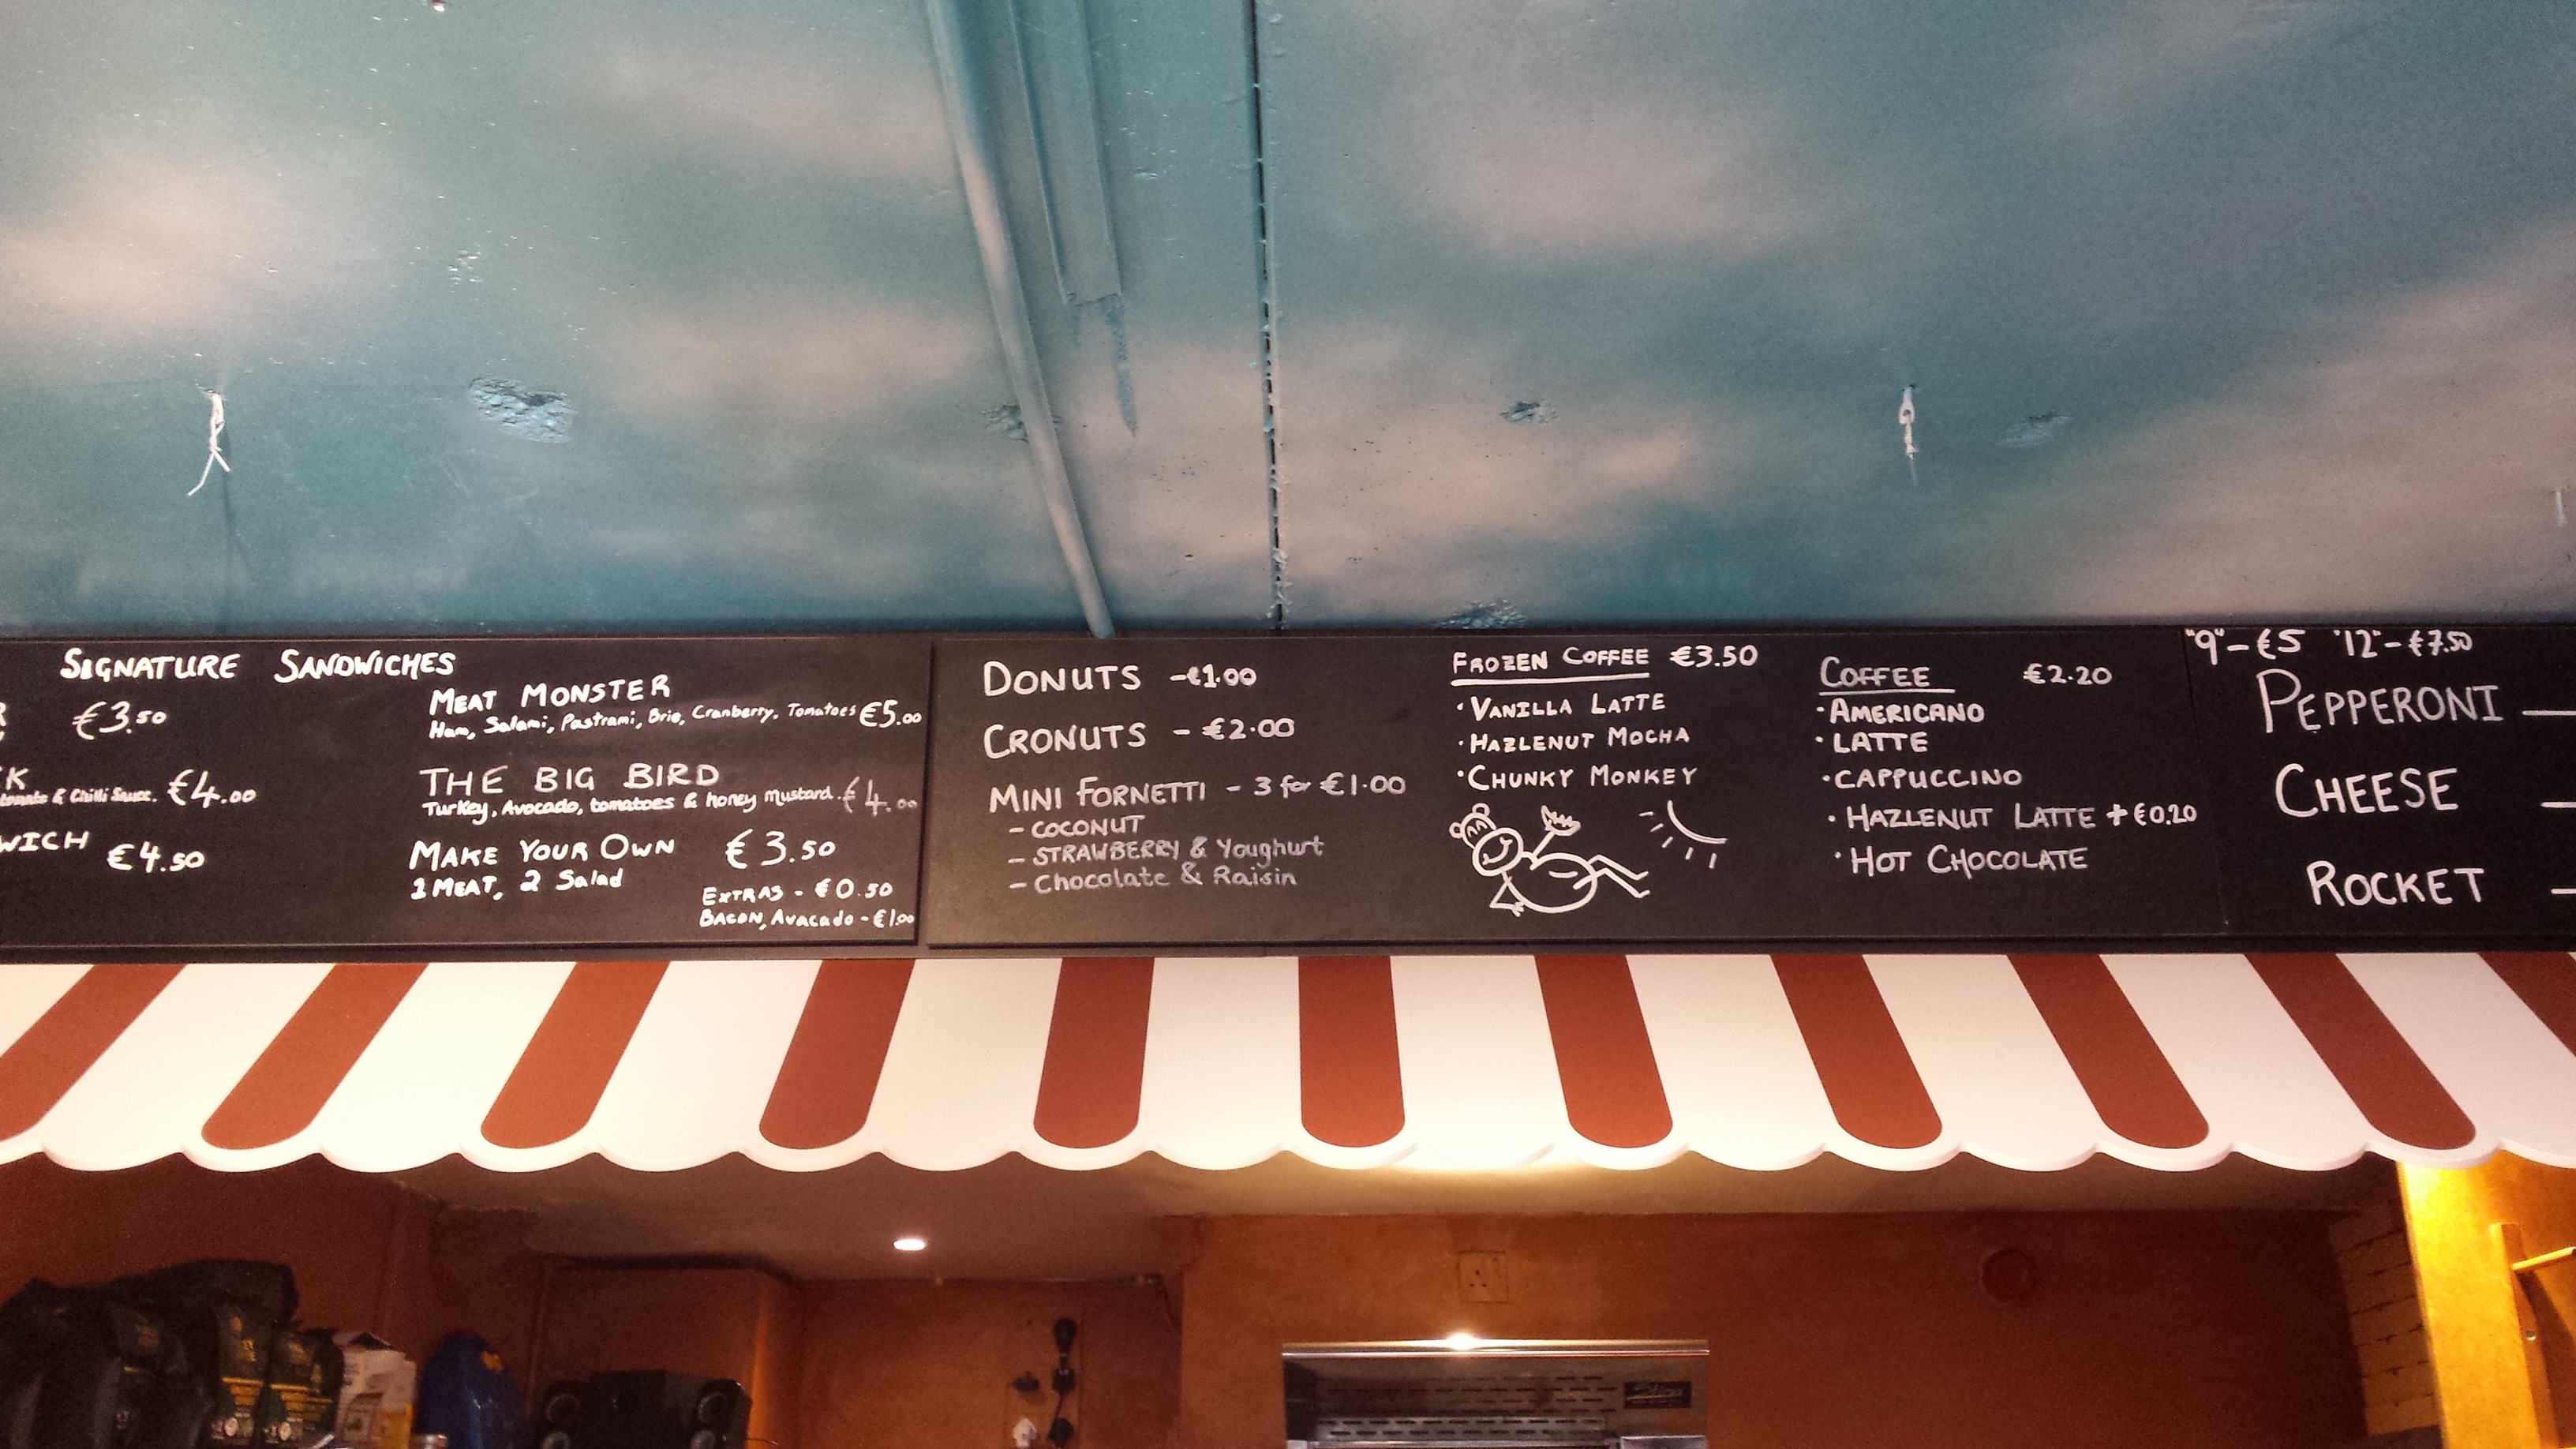 SIGNATURE SANDWICHES
€3.50
€4.00
& Chilli Sauce.
WICH €4.50
MEAT MONSTER
Ham, Salami, Pastrami, Brie, Cranberry, Tomatoes €5.00
THE BIG BIRD
Turkey, Avocado, tomatoes & honey mustard. €4.00
MAKE YOUR OWN €3.50
1 MEAT, 2 Salad
EXTRAS - €0.50
BACON, Avacado - €1.00
DONUTS - €1.00
CRONUTS - €2.00
MINI FORNETTI - 3 for €1.00
- COCONUT
- STRAWBERRY & Youghurt
- Chocolate & Raisin
FROZEN COFFEE €3.50
· VANILLA LATTE
· HAZLENUT MOCHA
· CHUNKY MONKEY
COFFEE €2.20
· AMERICANO
· LATTE
· CAPPUCCINO
· HAZLENUT LATTE + €0.20
· HOT CHOCOLATE
"9" - €5 "12" - €7.50
PEPPERONI
CHEESE
ROCKET